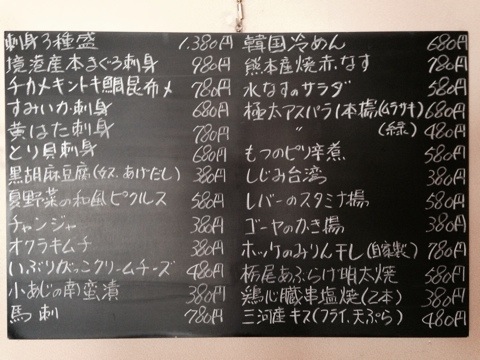 刺身3種盛 1.380円
境港産本まぐろ刺身 980円
チカメキントキ鯛昆布〆 780円
すみいか刺身 680円
黄はた刺身 780円
とり貝刺身 680円
黒胡麻豆腐(タス、あげだし) 380円
夏野菜の和風ピクルス 580円
チャンジャ 380円
オクラキムチ 380円
いぶりがっこクリームチーズ 480円
小あじの南蛮漬 380円
馬刺 780円
韓国冷めん 680円
熊本産焼赤なす 780円
水なすのサラダ 580円
極太アスパラ1本揚(ムラサキ) 680円
〃 (緑) 480円
もつのピリ辛煮 580円
しじみ台湾 380円
レバーのスタミナ揚 580円
ゴーヤのかき揚 380円
ホッケのみりん干し(自家製) 780円
栃尾あぶらげ明太焼 580円
鶏心臓串塩焼(2本) 380円
三河産キス(フライ、天ぷら) 480円